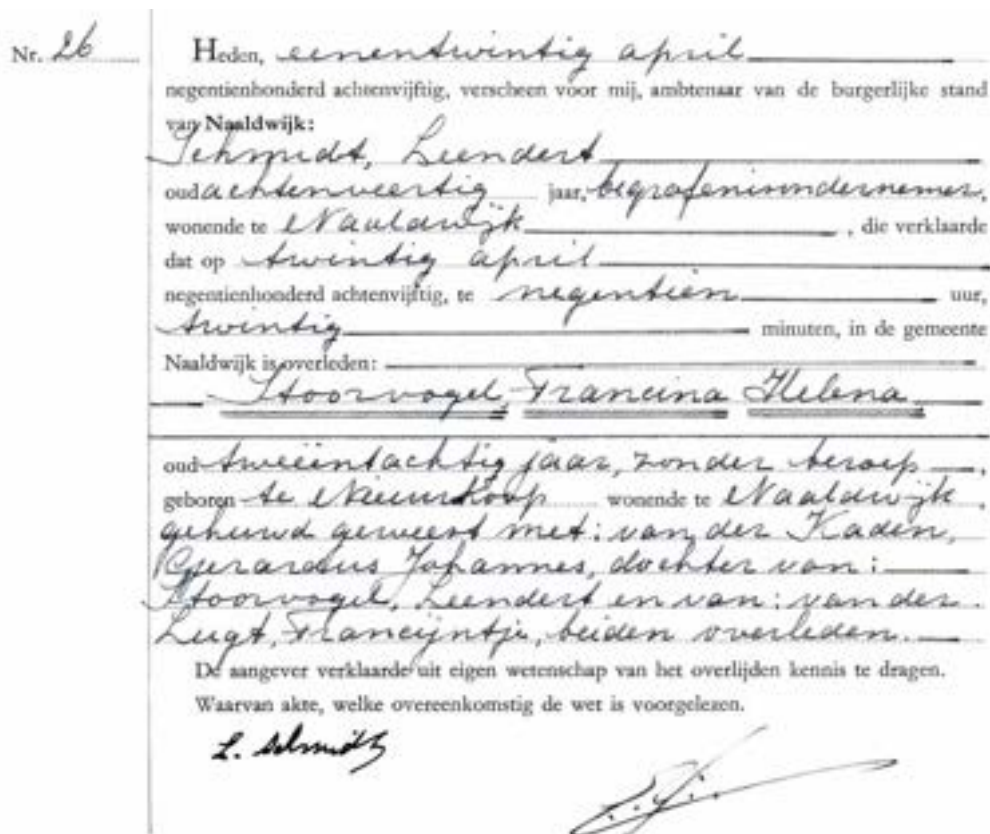 Nr. 26
Heden, eenentwintig april
negentienhonderd achtenvijftig, verscheen voor mij, ambtenaar van de burgerlijke stand
van Naaldwijk:
Schmidt, Leendert
oud achtenveertig jaar, begrafenisondernemer,
wonende te Naaldwijk, die verklaarde
dat op twintig april
negentienhonderd achtenvijftig, te negentien uur,
twintig minuten, in de gemeente
Naaldwijk is overleden:
Stoorvogel, Francina Helena
oud tweeëntachtig jaar, zonder beroep,
geboren te Nieuwkoop wonende te Naaldwijk,
gehuwd geweest met: van der Kaden,
Gerardus Johannes, dochter van:
Stoorvogel, Leendert en van: van der
Lugt, Francijntje, beiden overleden.
De aangever verklaarde uit eigen wetenschap van het overlijden kennis te dragen.
Waarvan akte, welke overeenkomstig de wet is voorgelezen.
L. Schmidt